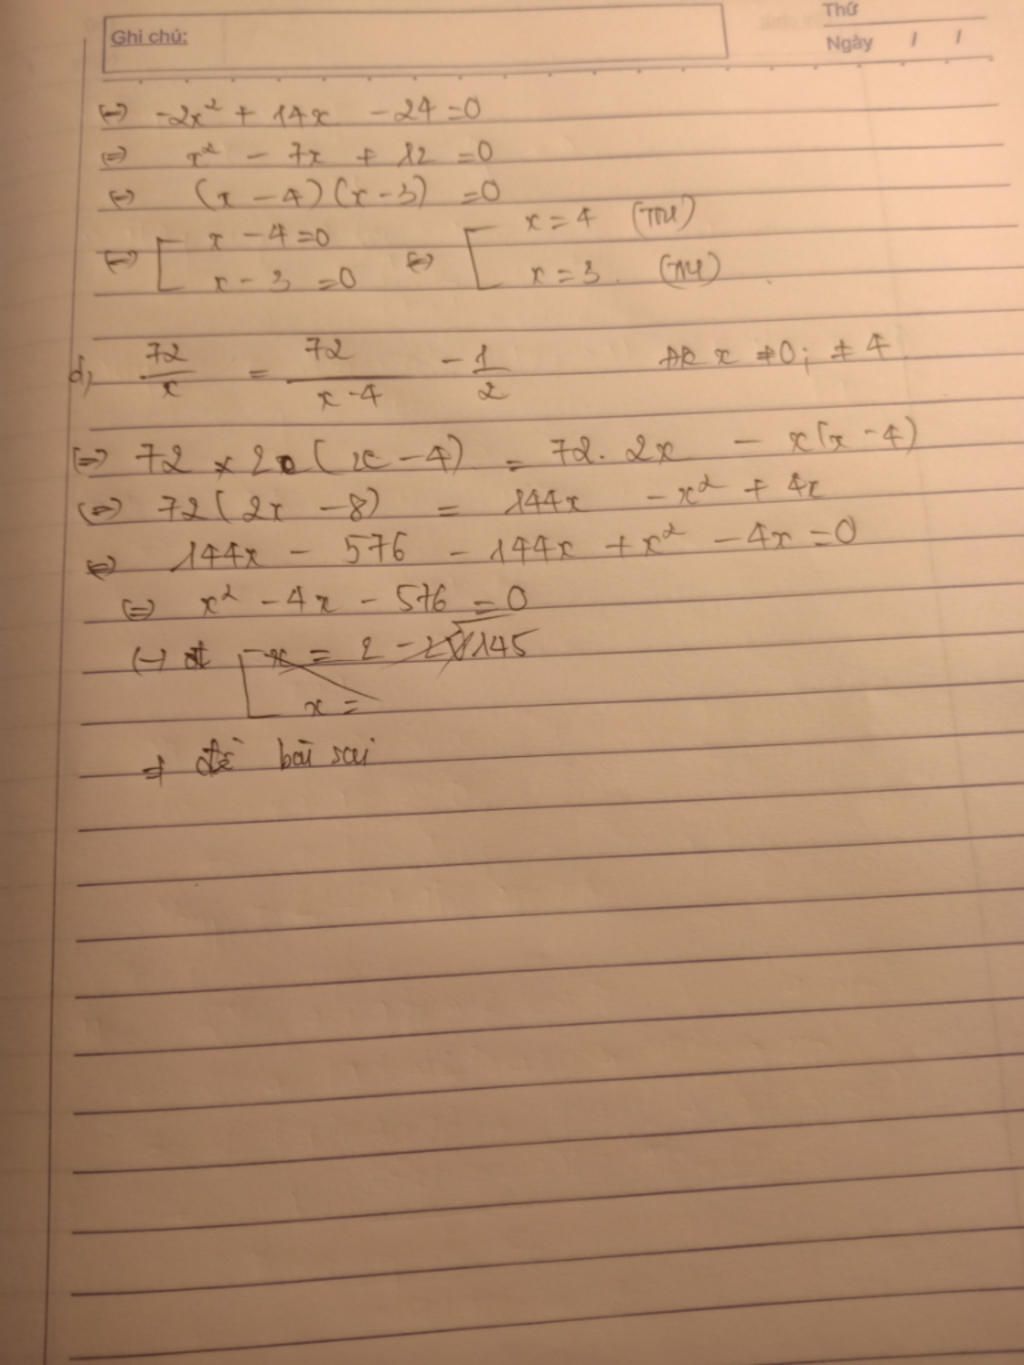 Thứ
Ghi chú:
Ngày / /
⇔ -2x² + 14x - 24 = 0
⇔ x² - 7x + 12 = 0
⇔ (x - 4)(x - 3) = 0
⇔ [ x - 4 = 0 ⇔ [ x = 4 (TM)
x - 3 = 0 x = 3 (TM)
d, 72/x = 72/(x-4) - 1/2 ĐK x ≠ 0; ≠ 4
⇔ 72 × 2 (x - 4) = 72. 2x - x(x - 4)
⇔ 72(2x - 8) = 144x - x² + 4x
⇔ 144x - 576 - 144x + x² - 4x = 0
⇔ x² - 4x - 576 = 0
⇔ [ x = 2 - 2√145
x =
⇒ đề bài sai